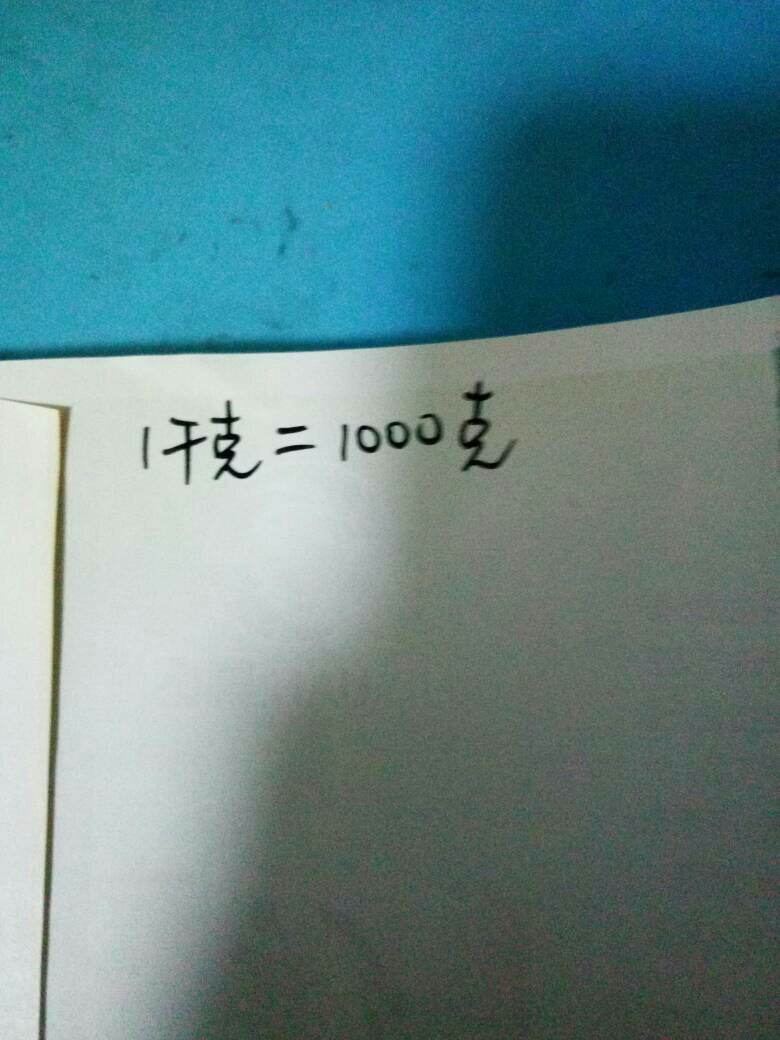 1千克=1000克